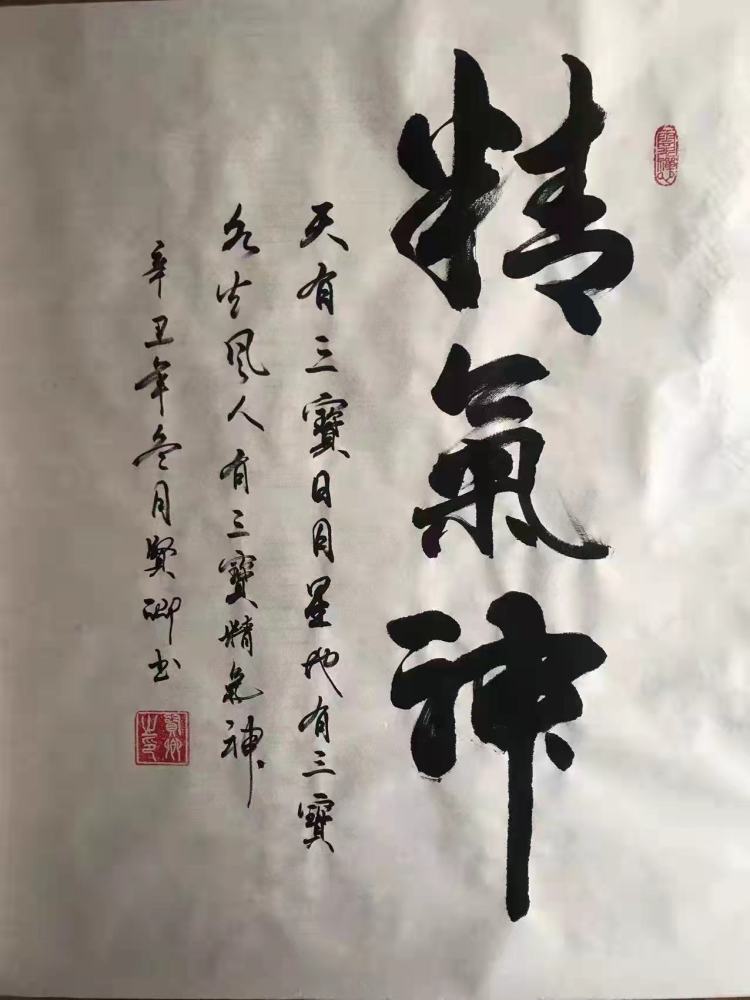 精氣神
天有三寶日月星地有三寶
水火風人有三寶精氣神
辛丑年冬月賢卿書
賢卿之印